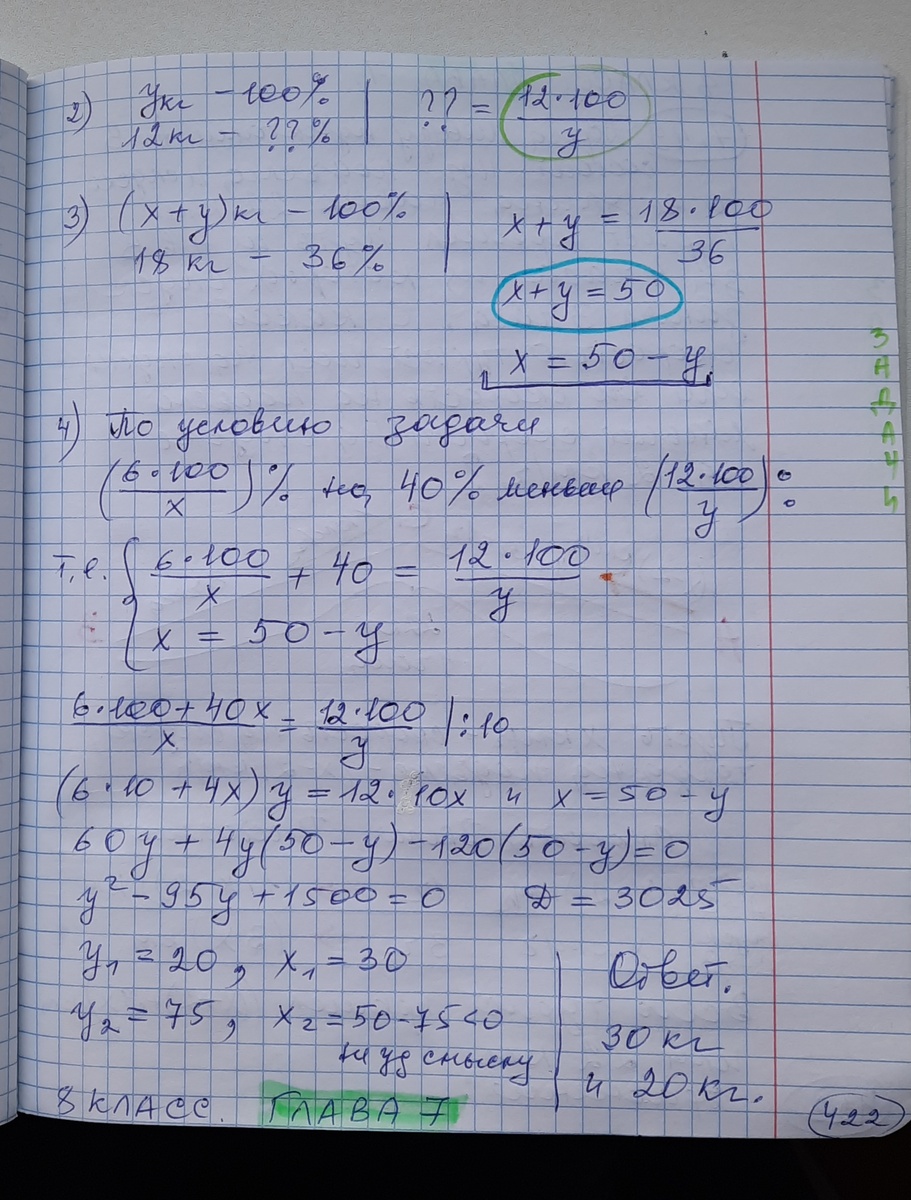 2) y кг – 100% | ?? = 12·100/y
12 кг – ??%
3) (x+y) кг – 100% | x+y = 18·100/36
18 кг – 36%
x+y = 50
x = 50 – y
4) По условию задачи
(6·100/x)% на 40% меньше (12·100/y):
т.е. { 6·100/x + 40 = 12·100/y
x = 50 – y
6·100+40x/x = 12·100/y |:10
(6·10 + 4x) y = 12·10x и x = 50 – y
60y + 4y(50–y) – 120(50–y) = 0
y² – 95y + 1500 = 0 D = 3025
y₁ = 20, x₁ = 30
y₂ = 75, x₂ = 50–75<0
не уд смыслу
Ответ.
30 кг
и 20 кг.
8 КЛАСС. ГЛАВА 7
422
ЗАДАЧИ